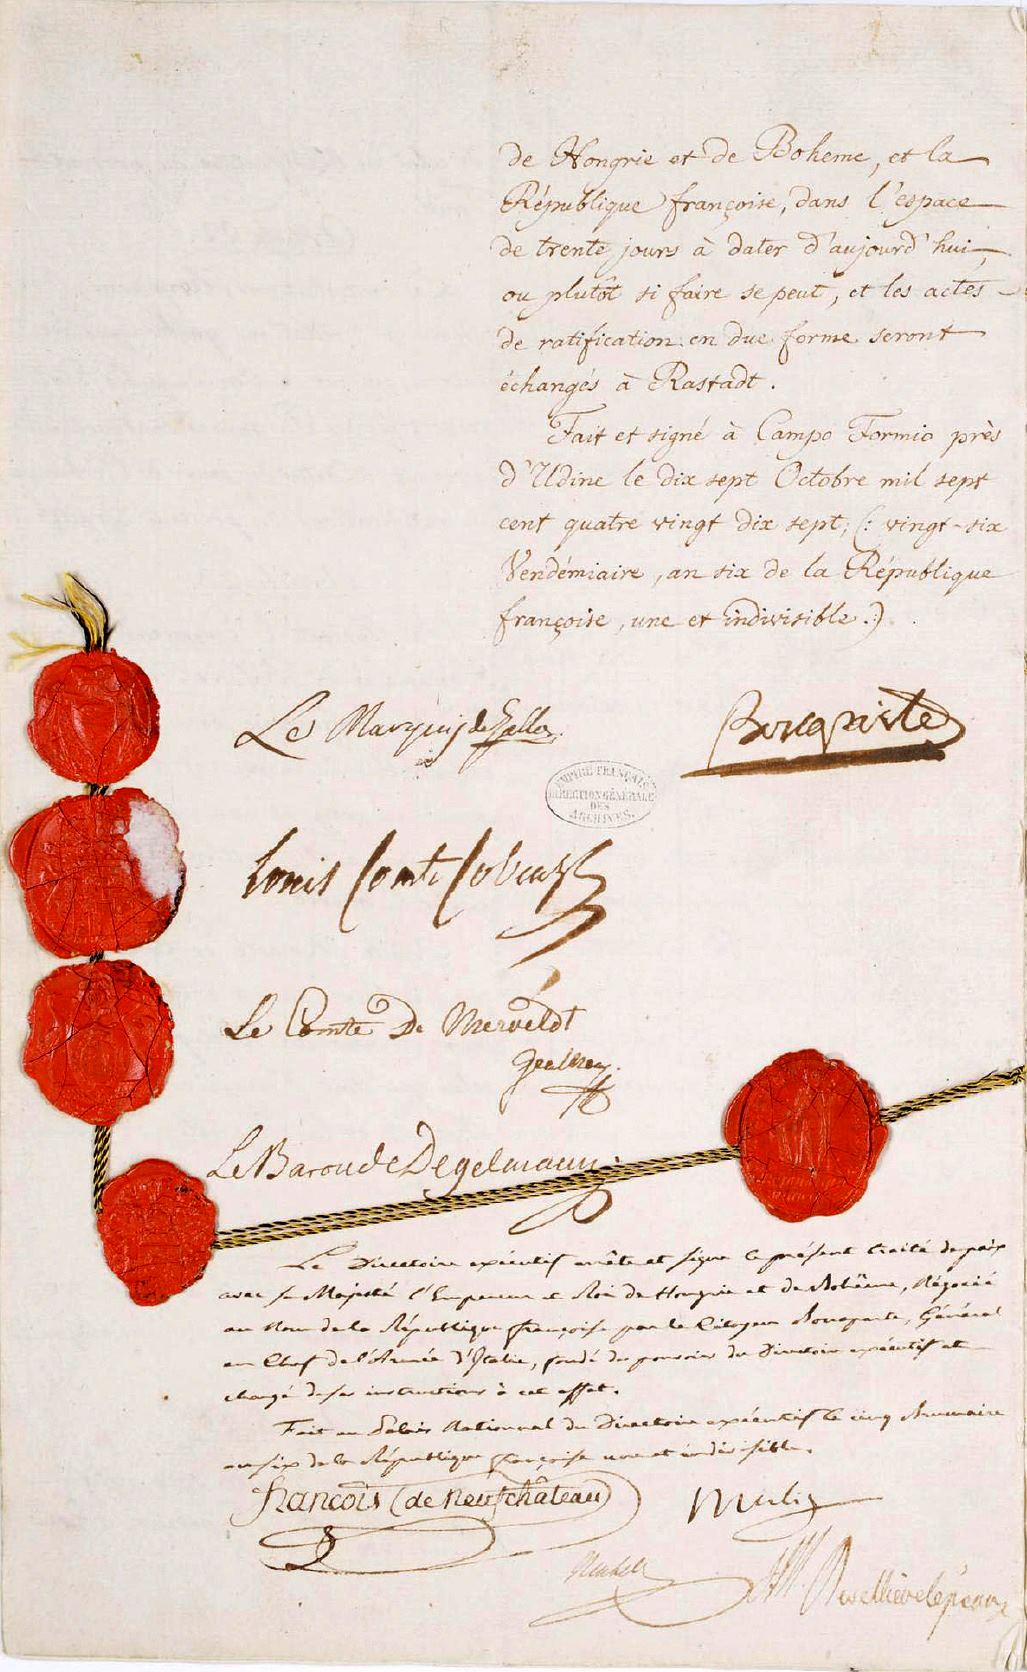 de Hongrie et de Boheme, et la
République françoise, dans l'espace
de trente jours à dater d'aujourd'hui,
ou plutôt si faire se peut, et les actes
de ratification en due forme seront
échangés à Rastadt.
Fait et signé à Campo Formio près
d'Udine le dix sept Octobre mil sept
cent quatre vingt dix sept, (: vingt-six
Vendémiaire, an six de la République
françoise, une et indivisible.:)
Le Marquis de Gallo.
Bonaparte
EMPIRE FRANÇAIS
DIRECTION GÉNÉRALE
DES
ARCHIVES.
Louis Comte Cobenzl
Le Comte De Merveldt
Le Baron de Degelmann
Le Directoire exécutif arrête et signe le présent traité de paix
avec sa Majesté l'Empereur et Roi de Hongrie et de Bohëme, Négocié
au Nom de la République françoise par le Citoyen Bonaparte, Général
en Chef de l'Armée d'Italie, fondé de pouvoirs du Directoire exécutif et
chargé de ses instructions à cet effet.
Fait au Palais National du Directoire exécutif le cinq Brumaire
an six de la République françoise une et indivisible.
François (de Neufchâteau)
Merlin
Rewbell
Revellière lépeaux